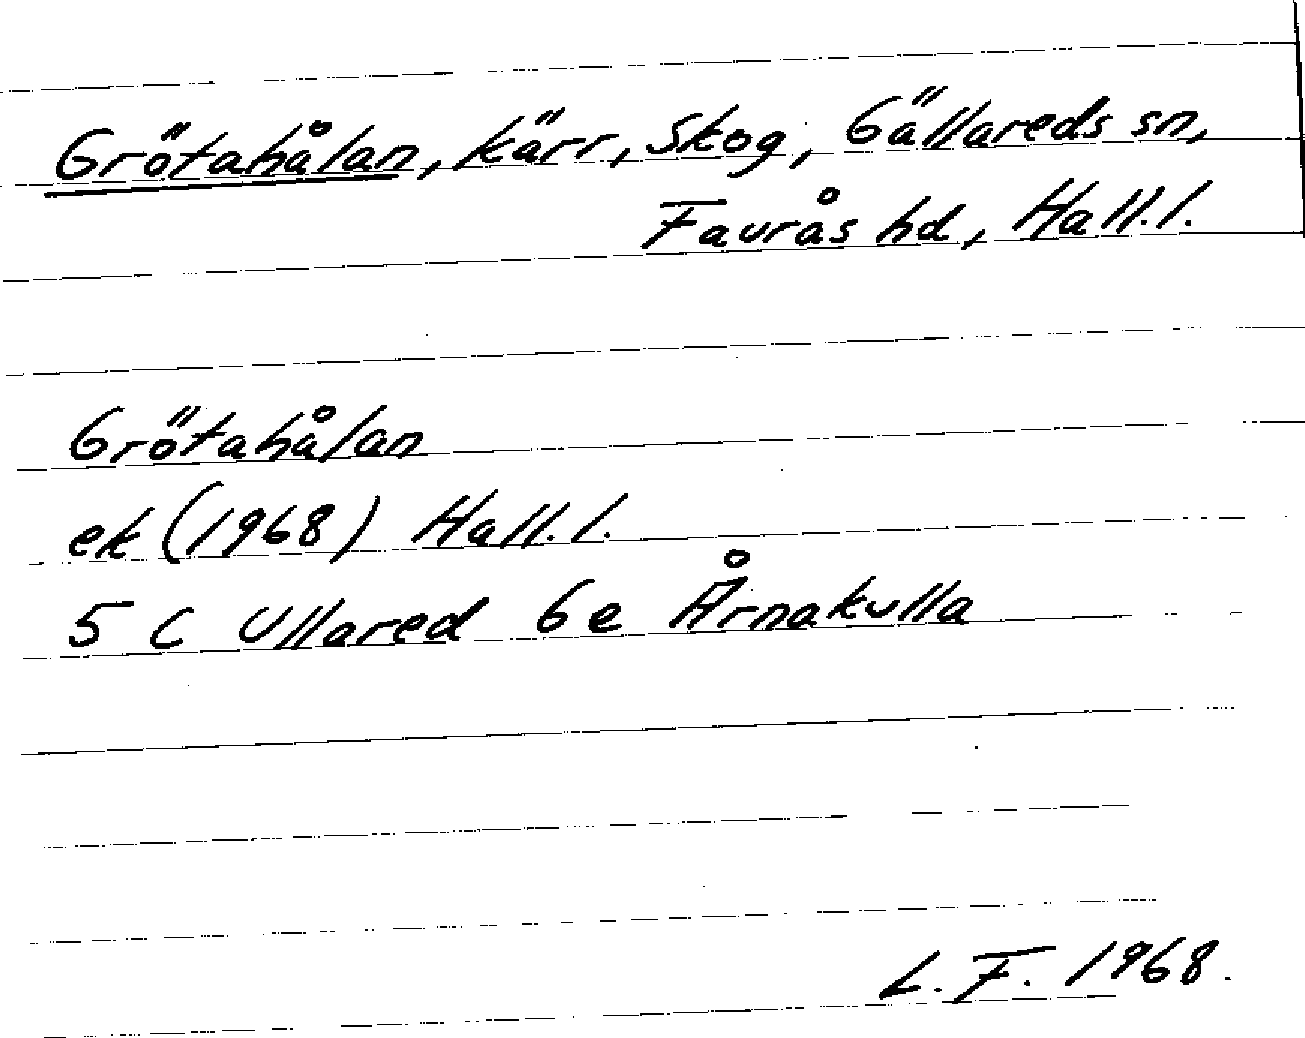 Grötahålan, kärr, Skog, Gällareds sn,
Faurås hd, Hall.l.
Grötahålan
ek (1968) Hall.l.
5 C Ullared 6e Årnakulla
L.F. 1968.